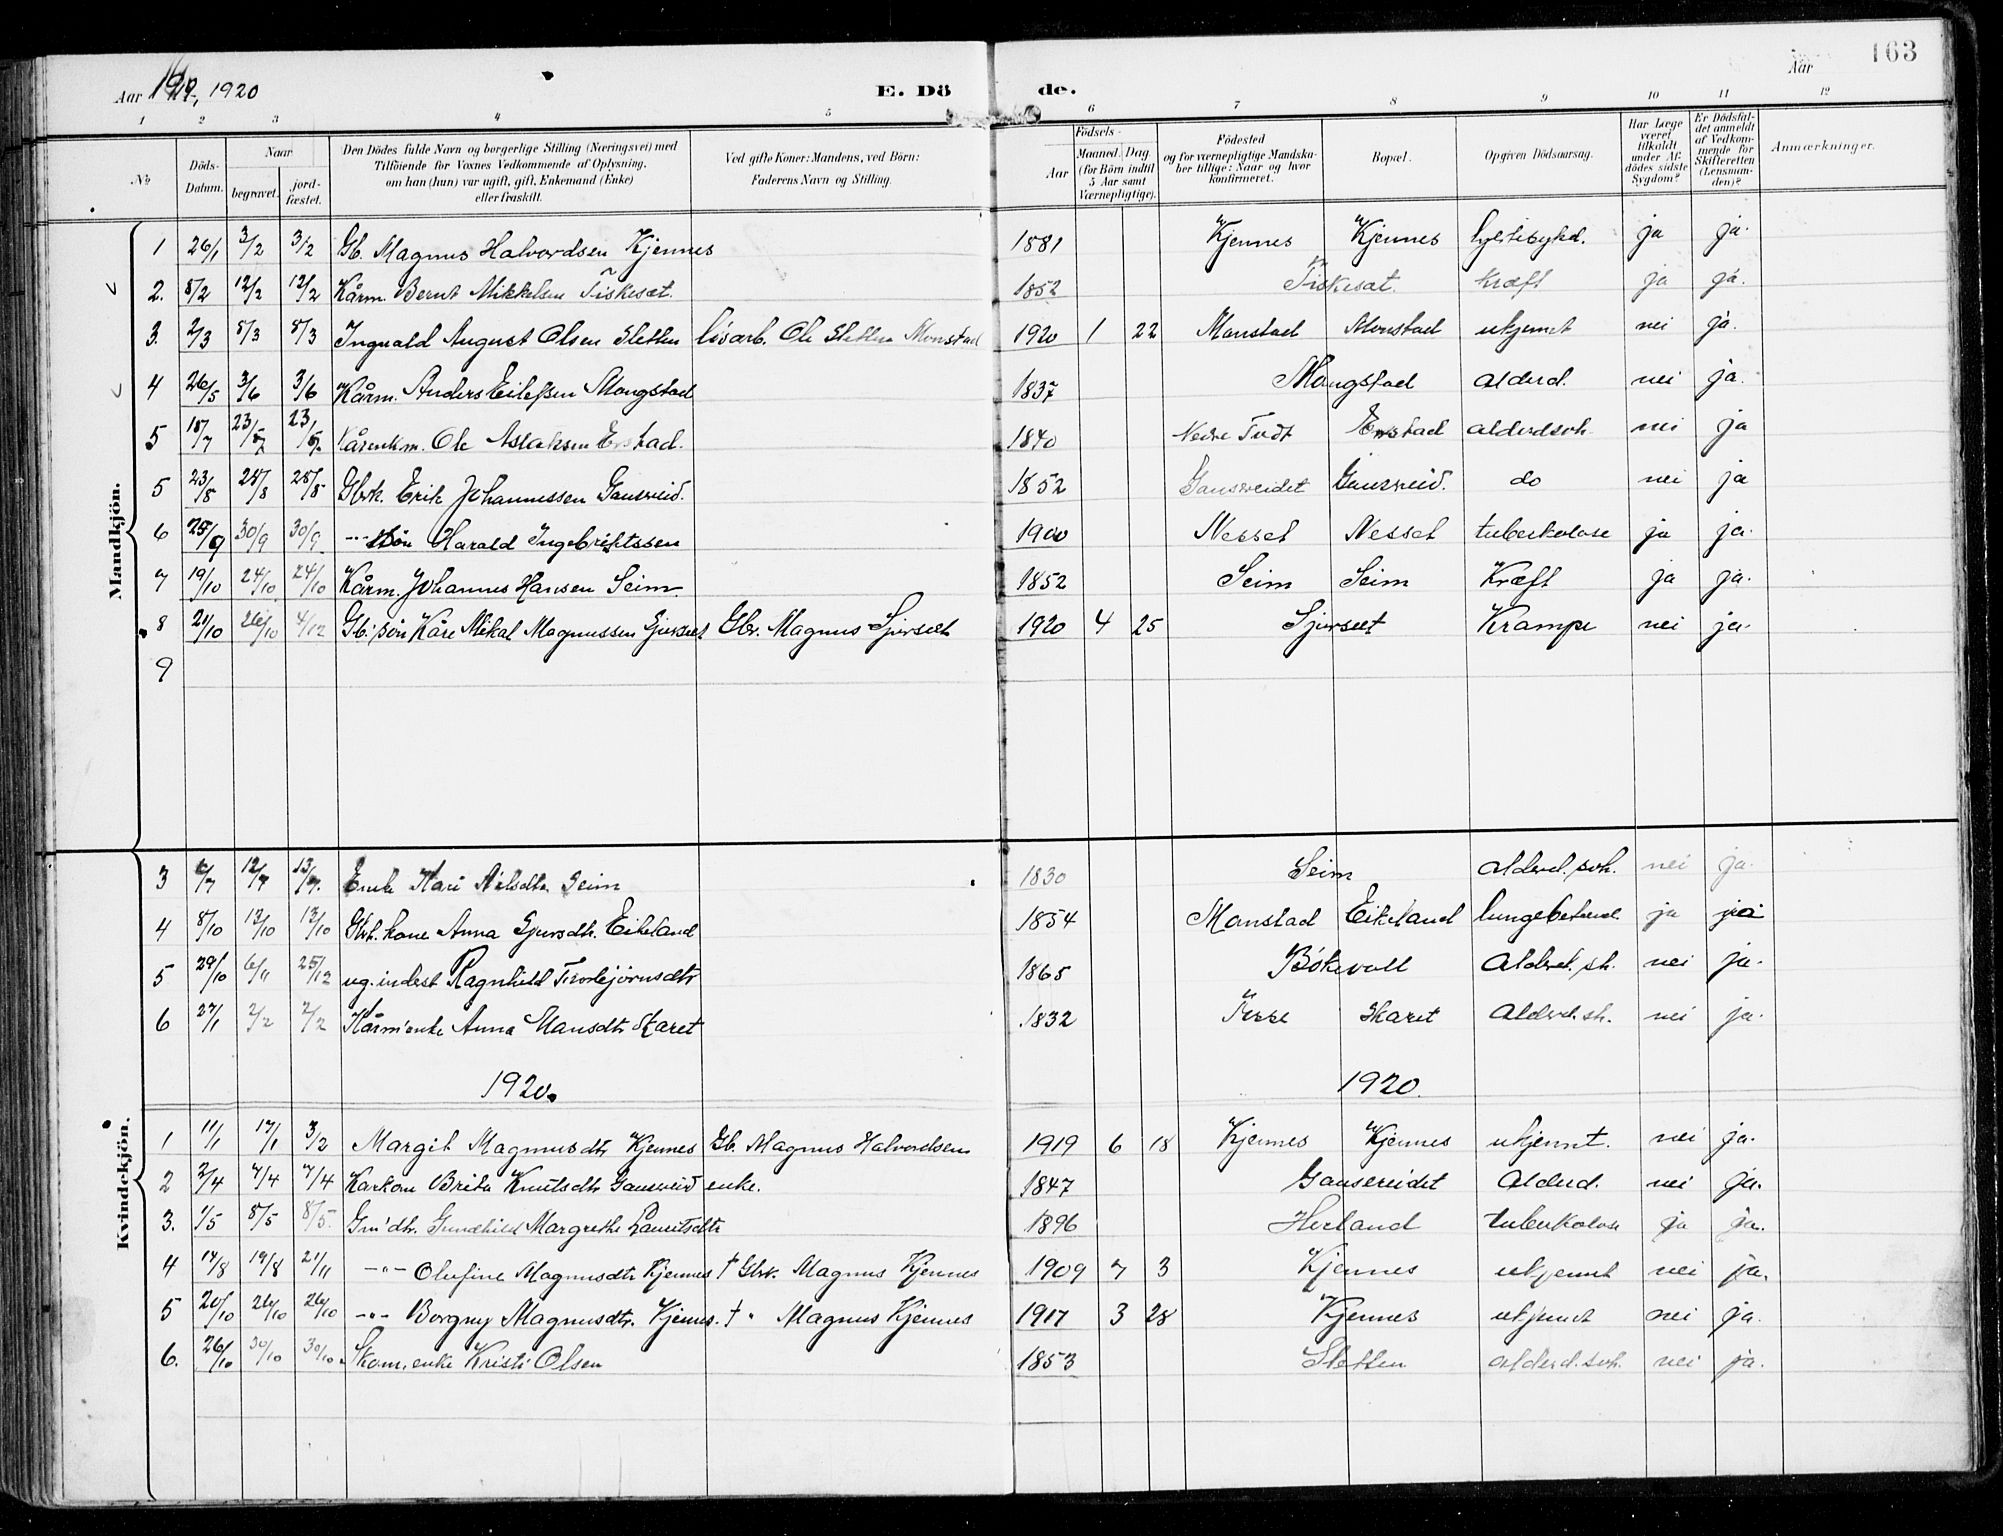 Aar 1919, 1920
E. Dö
de.
Aar
163
1 2 3 4 5 6 7 8 9 10 11 12
No
Döds-Datum.
Naar
begravet.
jord-fæstet.
Den Dödes fulde Navn og borgerlige Stilling (Næringsvei) med
Tilföiende for Voxnes Vedkommende af Oplysning,
om han (hun) var ugift, gift, Enkemand (Enke)
eller fraskilt.
Ved gifte Koner: Mandens, ved Börn:
Faderens Navn og Stilling.
Födsels-
Aar
Maaned. Dag
(for Börn indtil
5 Aar samt
Værnepligtige).
Födested
og for værnepligtige Mandska-
ber tillige: Naar og hvor
konfirmeret.
Bopæl.
Opgiven Dödsaarsag.
Har Læge
været
tilkaldt
under Af-
dödes sidste
Sygdom?
Er Dödsfal-
det anmeldt
af Vedkom-
mende for
Skifteretten
(Lensman-
den)?
Anmærkninger.
Mandkjön.
1 26/1 3/2 3/2 Gb. Magnus Halvordsen Kjennes 1881 Kjennes Kjennes ja ja.
2. 8/2 12/2 12/2 Kårm. Bernt Mikkelsen Fiskesæt. 1852 Fiskesæt. Kræft ja ja.
3. 2/3 8/3 8/3 Ingvald August Olsen Sletten løsarb. Ole Sletten Monstad 1920 1 22 Monstad Monstad ukjent nei ja.
4 26/5 3/6 3/6 Kårm. Anders Eilefsen Mongstad 1837 Mongstad alderd. nei ja.
5 18/7 23/7 23/7 Kårenkm. Ole Aslaksen 1840 Nedre alderdsvh. nei ja
5 23/8 28/8 28/8 Gbrk. Erik Johannessen Gausereid. 1852 Gausereidet Gausereid. do nei ja
6 25/9 30/9 30/9 -"- søn Harald Ingebrigtssen 1900 Nesset Nesset tuberkolose ja ja.
7 19/10 24/10 24/10 Kårm. Johannes Hansen Seim. 1852 Seim Seim Kræft ja ja.
8 21/10 26/10 4/12 Gb. søn Kåre Mikal Magnussen Sjurset Gbr. Magnus Sjurset 1920 4 25 Sjurset Krampe nei ja.
9
Kvindekjön.
3 /7 12/7 13/7. Enke Kari Nilsdtr Seim 1830 Seim alderd.svh. nei ja.
4 8/10 13/10 13/10 Gbrk. kone Anna Sjursdtr. Eikeland 1854 Monstad Eikeland lungebetend. ja ja
5 29/10 6/11 25/12 ug. inderst Ragnhild Torbjørnsdtr 1865 Bøkevoll Alderd.sh. nei ja.
6 27/1 2/2 2/2 Kårm'enke Anna Hansdtr Skaret 1832 Skaret Alderd.sh. nei ja.
1920. 1920.
1 11/1 17/1 3/2 Margit Magnusdtr Kjennes Gb. Magnus Halvordsen 1919 6 18 Kjennes Kjennes ukjennt. nei ja.
2 2/4 7/4 7/4 Karkone Brita Knutsdtr Gausereid enke. 1847 Gausereidet Alderd. nei ja.
3. 1/5 8/5 8/5. Gm'dtr. Gundhild Margrethe Lauritsdtr 1896 Herland tuberkolose ja ja.
4 14/8 19/8 21/11 -"- Olufine Magnusdtr Kjennes † Gbrk. Magnus Kjennes 1909 7 3 Kjennes ukjennt nei ja.
5 20/10 26/10 26/10 -"- Borgny Magnusdtr. Kjennes. † " Magnus Kjennes 1917 3 28 Kjennes ukjendt nei ja.
6. 26/10 30/10 30/10 Skom. enke Kristi Olsen 1853 Sletten alderd.svh. nei ja.